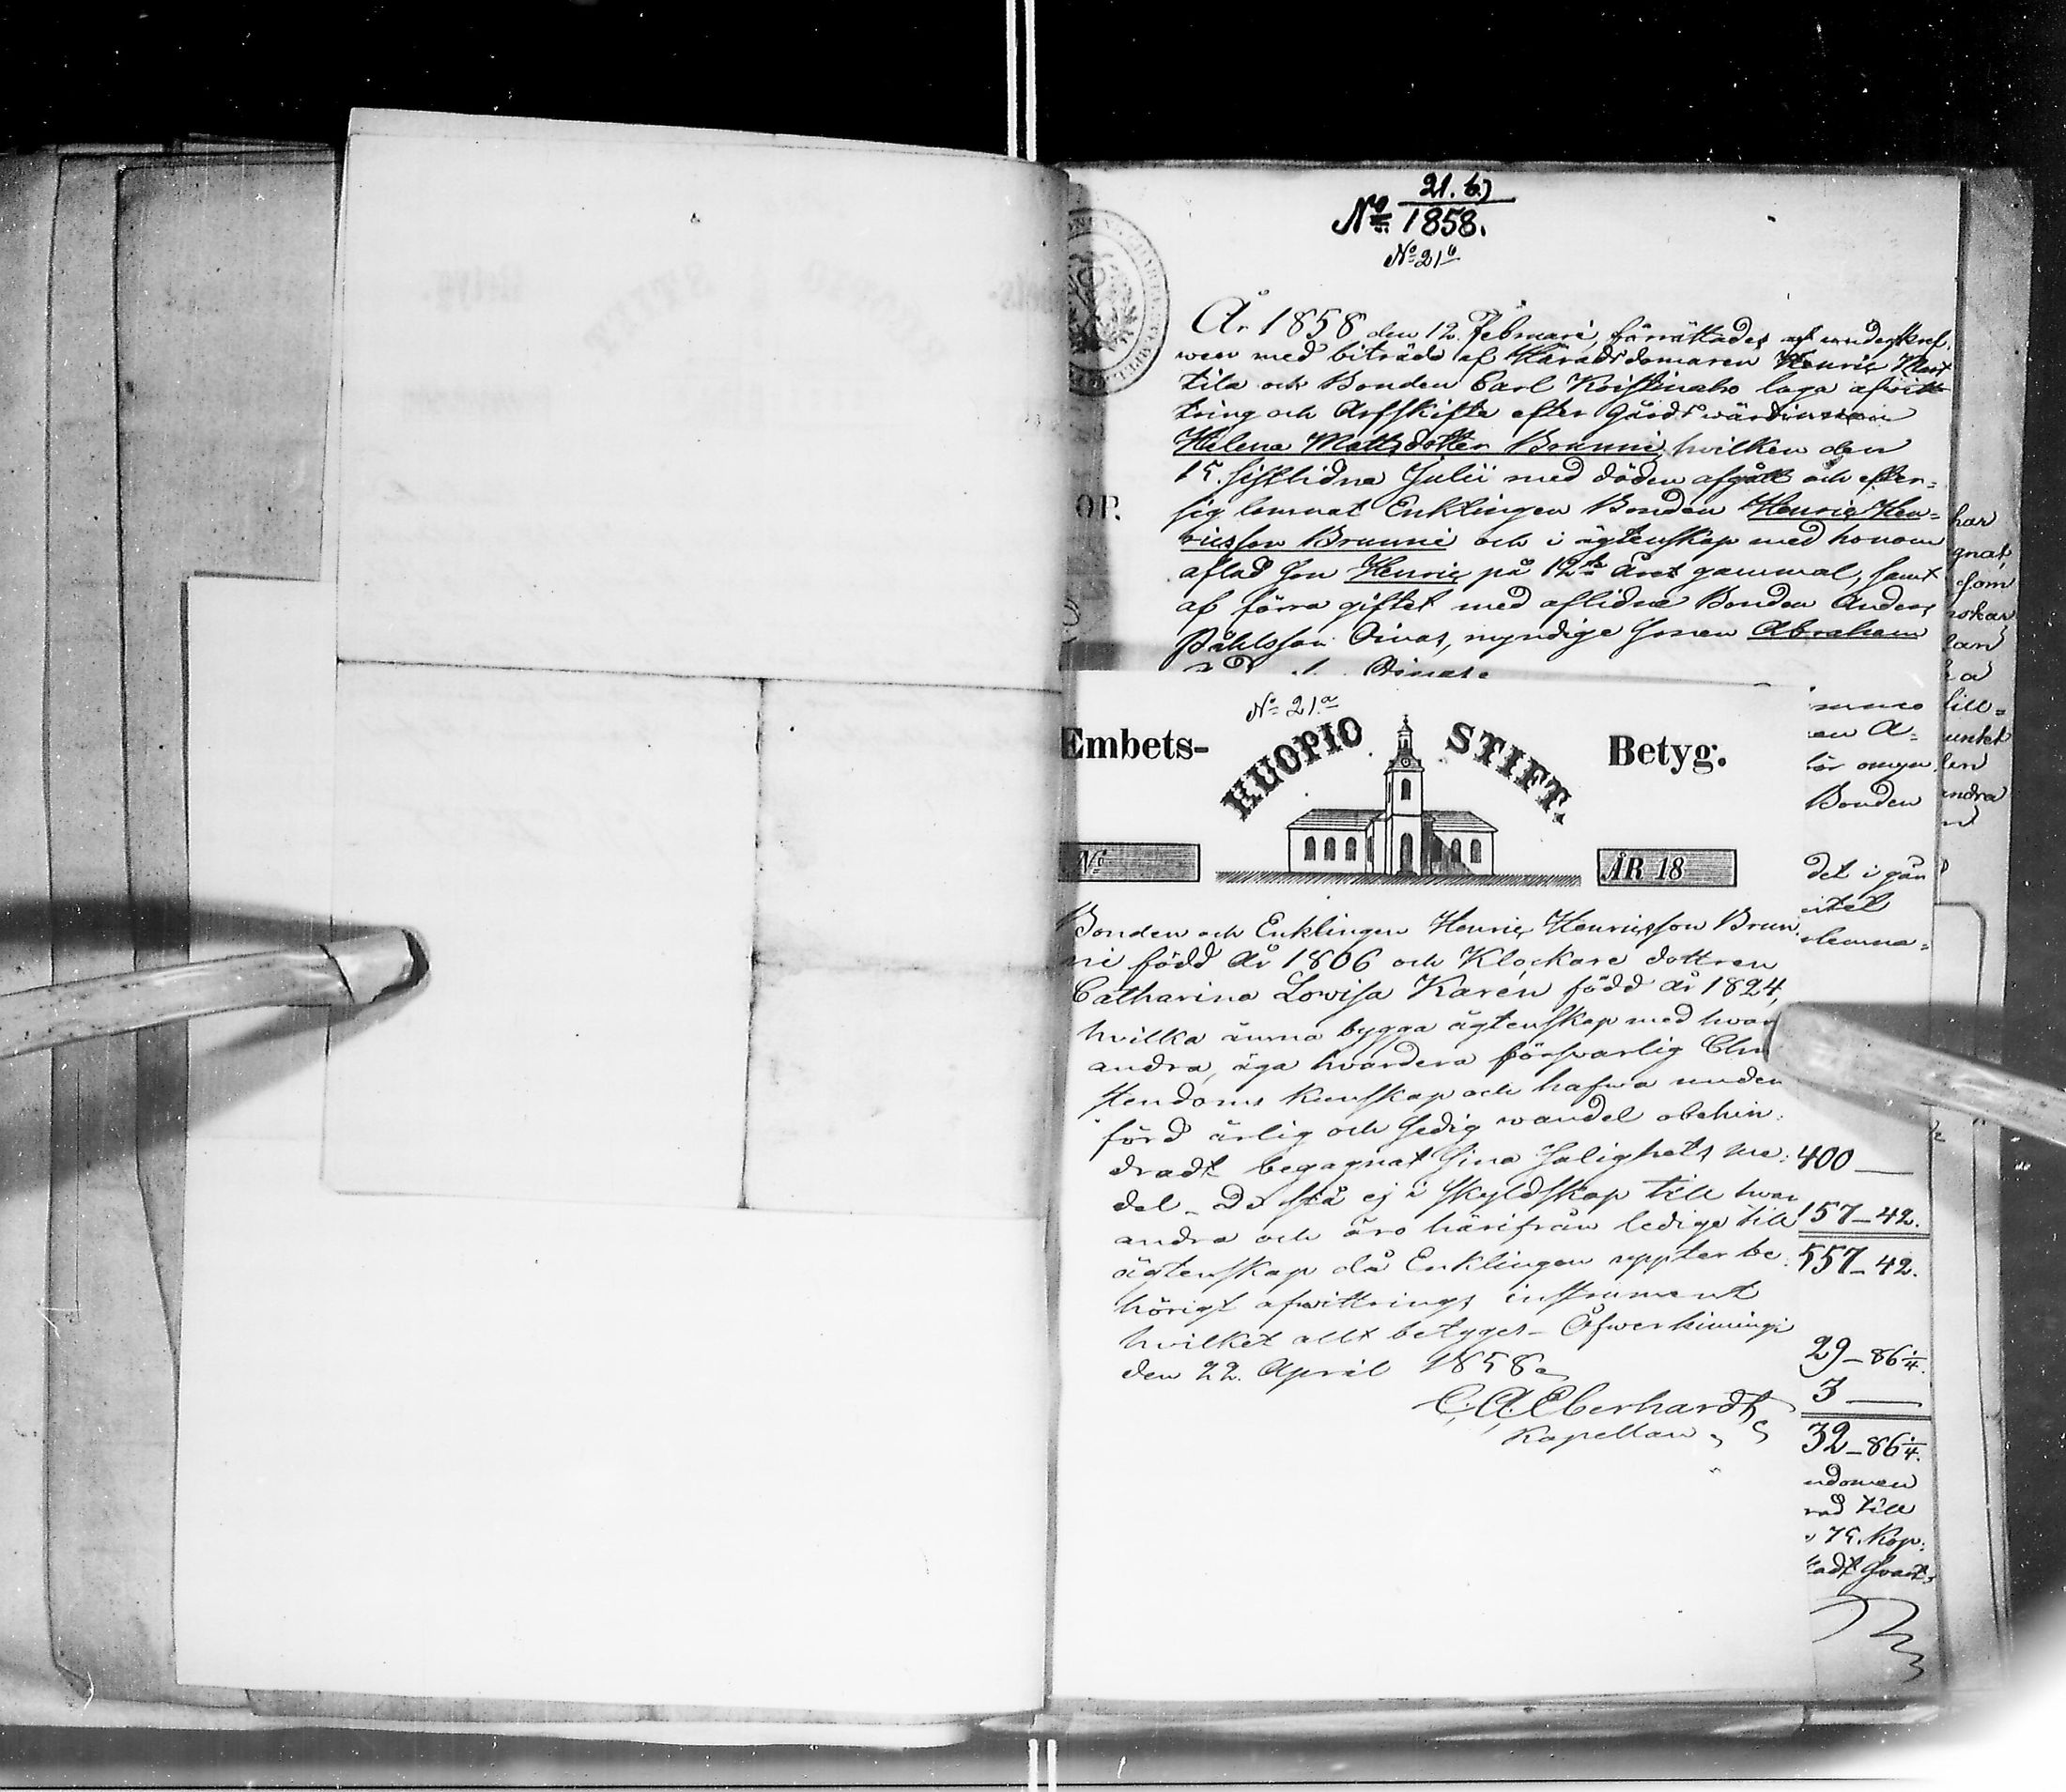 21. b)
No 1858.
No 21 b
År 1858 den 12. Februari, förrättades af underskref.
wen med biträde af Häradsdomaren Henric Mart
tila och Bonden Carl Kristinaho laga afwitt
tring och Arfskifte efter Gårdswärdinnan
Helena Mattsdotter Brunni, hvilken den
15. sistlidne Julii med döden afgått och efter=
sig lemnat Enklingen Bonden Henric Hen=
ricsson Brunni och i ägtenskap med honom
aflad son Henric på 12te året gammal, samt
af förra giftet med aflidne Bonden Anders
Påhlsson Oinas, myndige sonen Abraham
Oinas.
OP.
No 21.a
Embets-
KUOPIO STIFT.
Betyg.
No
ÅR 18
Bonden och Enklingen Henric Henricsson Brun
ni född år 1806 och Klockare dottren
Catharina Lovisa Karén född år 1824,
hvilka ämna bygga ägtenskap med hvar
andra, äga hvardera försvarlig Chri
stendoms kunskap och hafwa under
förd ärlig och sedig wandel obehin:
dradt begagnat sina salighets me:
del. De stå ej i skyldskap till hvar
andra och äro härifrån ledige till
ägtenskap då Enklingen uppter be:
hörigt afwittrings instrument
hvilket allt betyges. Öfwerkiimingi
den 22. April 1858.
C. A. Eberhardt
Kapellan
en A=
för omyn
Bonden
det i går
lemna=
400 —
157 – 42.
557 – 42.
29 – 86 1/4.
3 —
32 – 86 1/4.
ndomen
rad till
75. Kop:
har
gnat,
som
andra